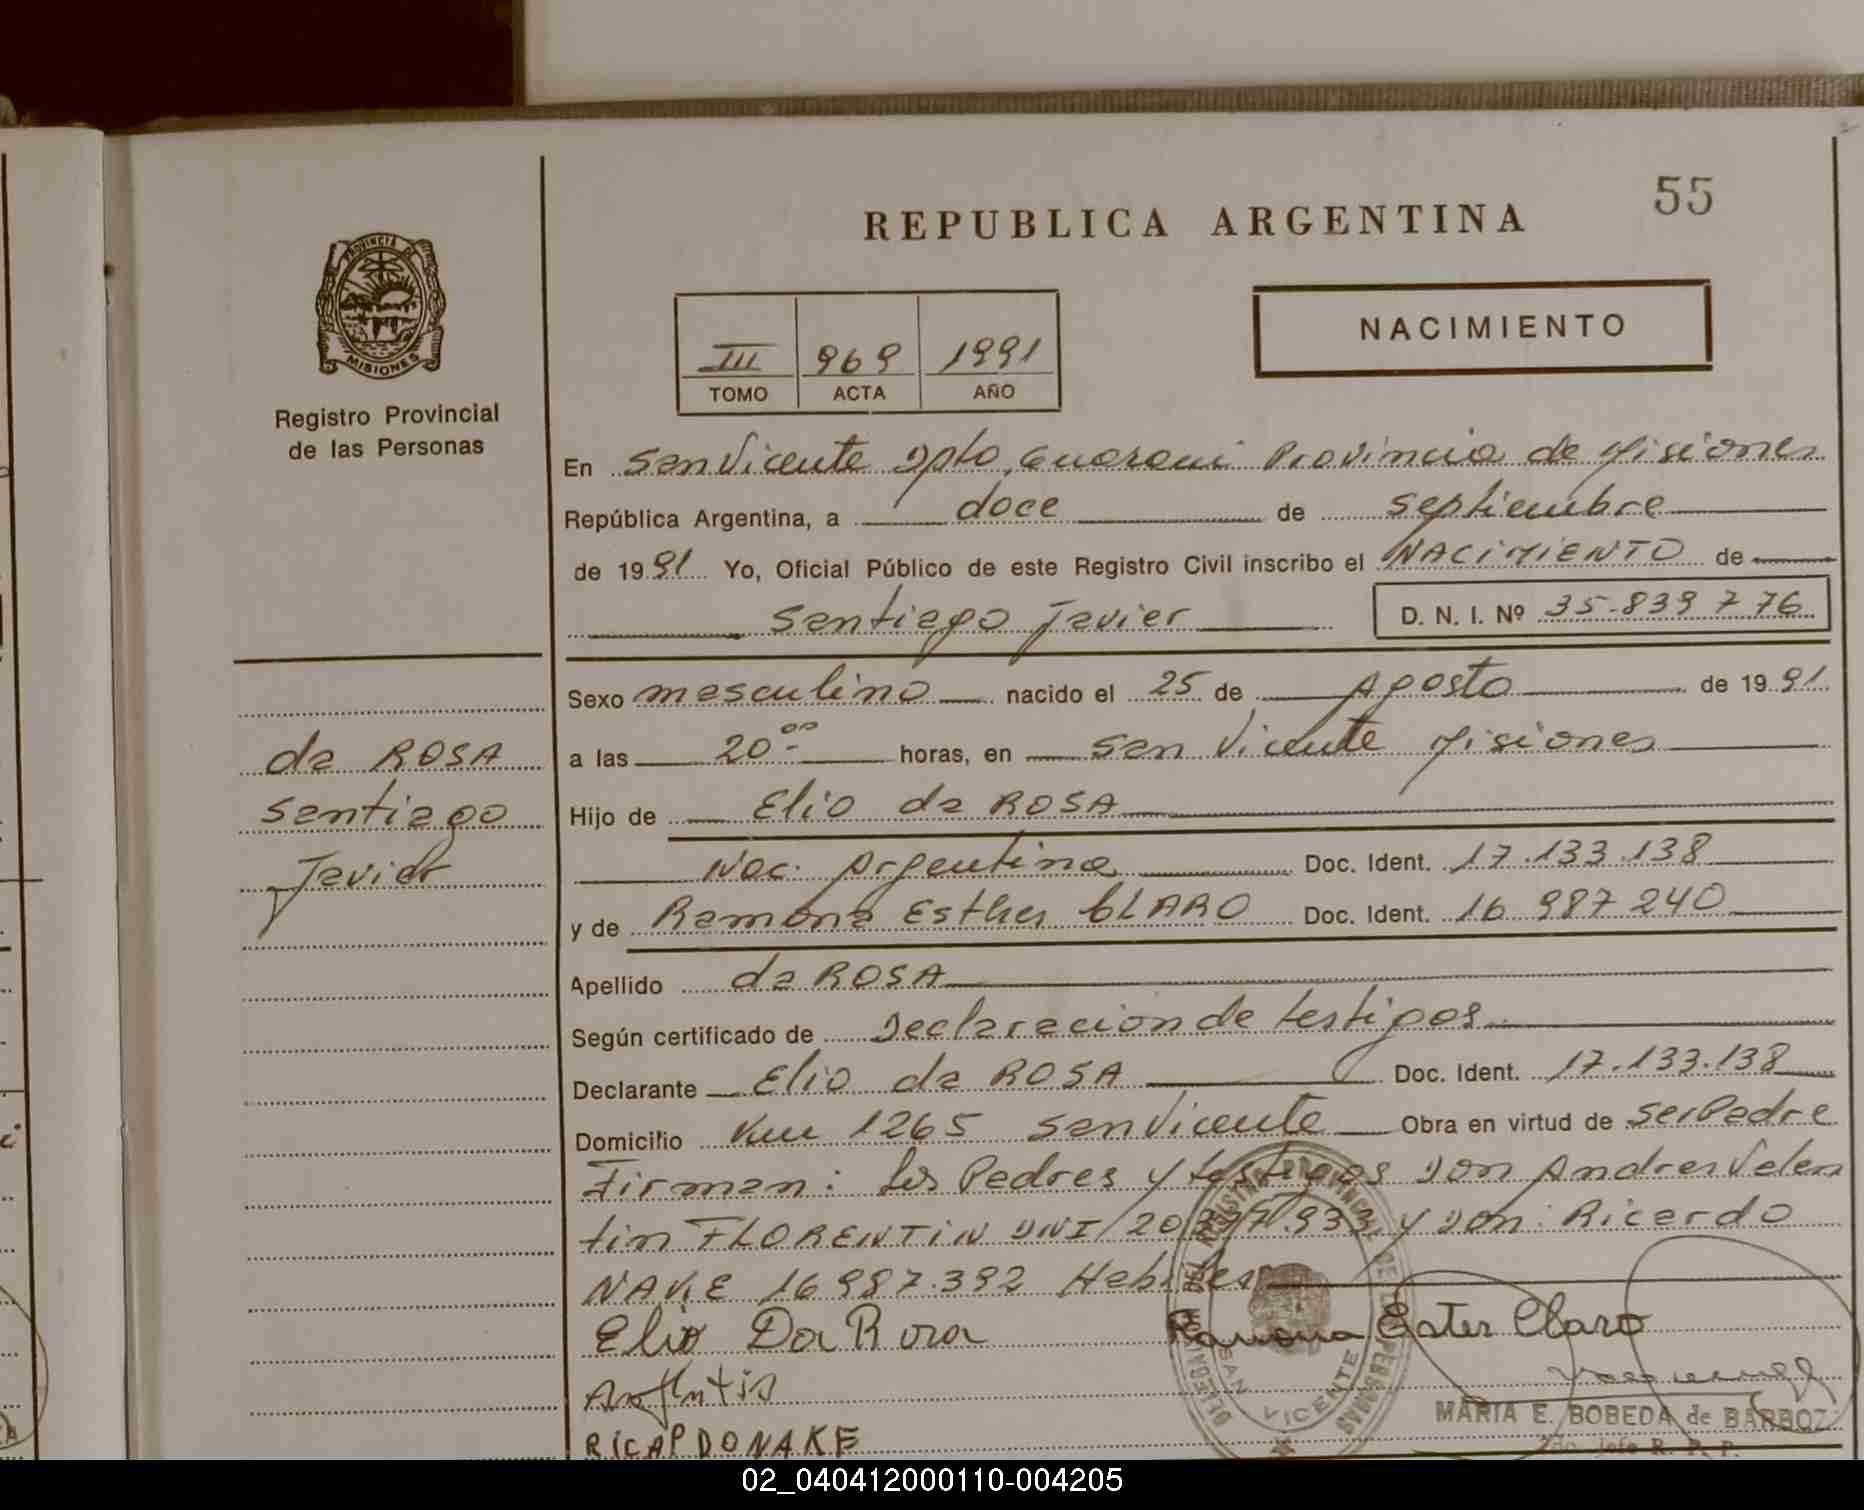 55
REPUBLICA ARGENTINA
PROVINCIA DE
MISIONES
Registro Provincial
de las Personas
III 969 1991
TOMO ACTA AÑO
NACIMIENTO
En San Vicente Dpto. Guarani Provincia de Misiones
República Argentina, a doce de septiembre
de 1991 Yo, Oficial Público de este Registro Civil inscribo el NACIMIENTO de
Santiago Javier D. N. I. Nº 35.839 776
Sexo masculino nacido el 25 de Agosto de 1991
a las 20 00 horas, en San Vicente Misiones
Hijo de Elio da ROSA
Nac. Argentina Doc. Ident. 17.133.138
y de Ramona Esther CLARO Doc. Ident. 16 987 240
Apellido da ROSA
Según certificado de Declaracion de testigos
Declarante Elio da ROSA Doc. Ident. 17.133.138
Domicilio Km 1265 San Vicente Obra en virtud de ser Padre
Firman: los Padres y testigos Don Andres Valen
tin FLORENTIN DNI 20 y Don: Ricardo
NAKE 16 987.392 Habiles
Elio Da Rosa Ramona Ester Claro
RICARDO NAKE
MARIA E. BOBEDA de BARBOZ
2do. Jefe R. P. P.
da ROSA
Santiago
Javier
SAN VICENTE
02_040412000110-004205